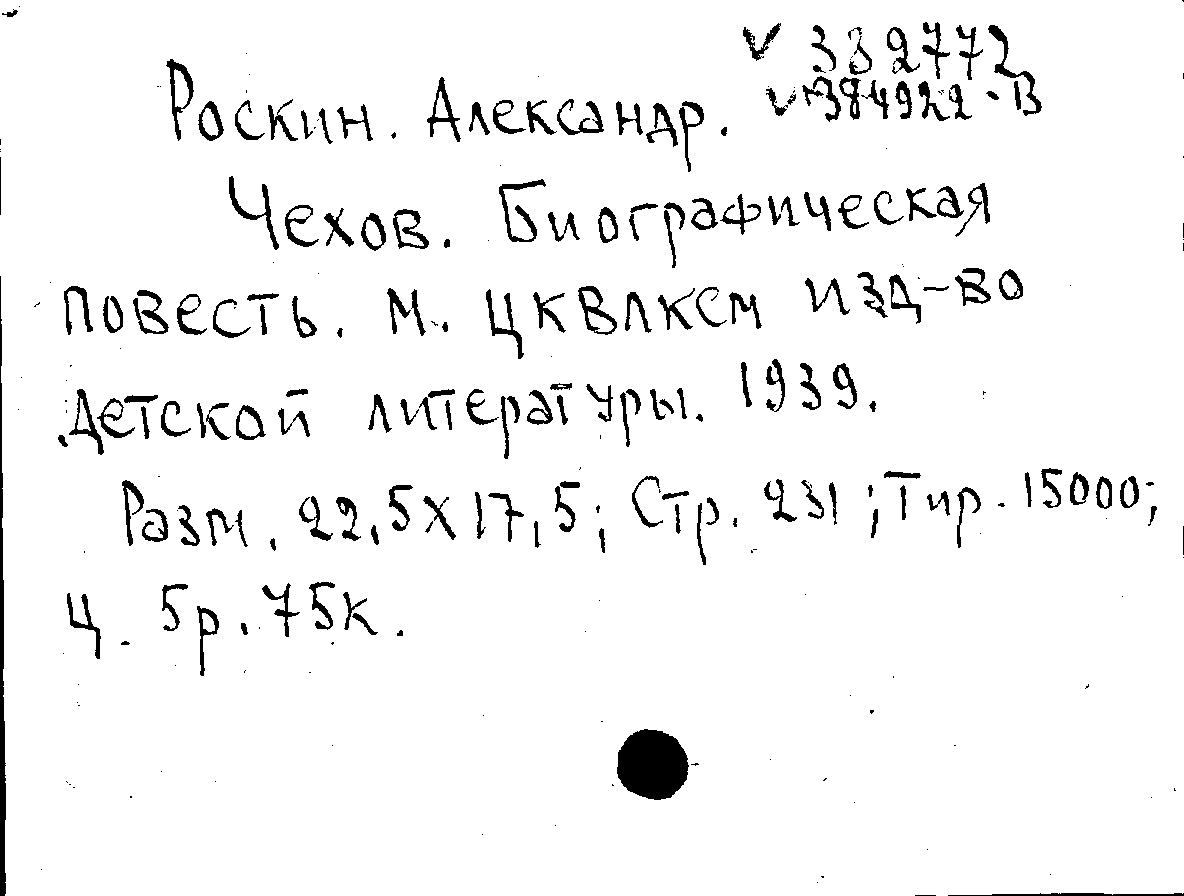 √ 332772
Роскин. Александр. √384922-В
Чехов. Биографическая
повесть. М. ЦКВЛКСМ изд-во
детской литературы. 1939.
Разм. 22,5х17,5; Стр. 231; Тир. 15000;
Ц. 5р. 75к.